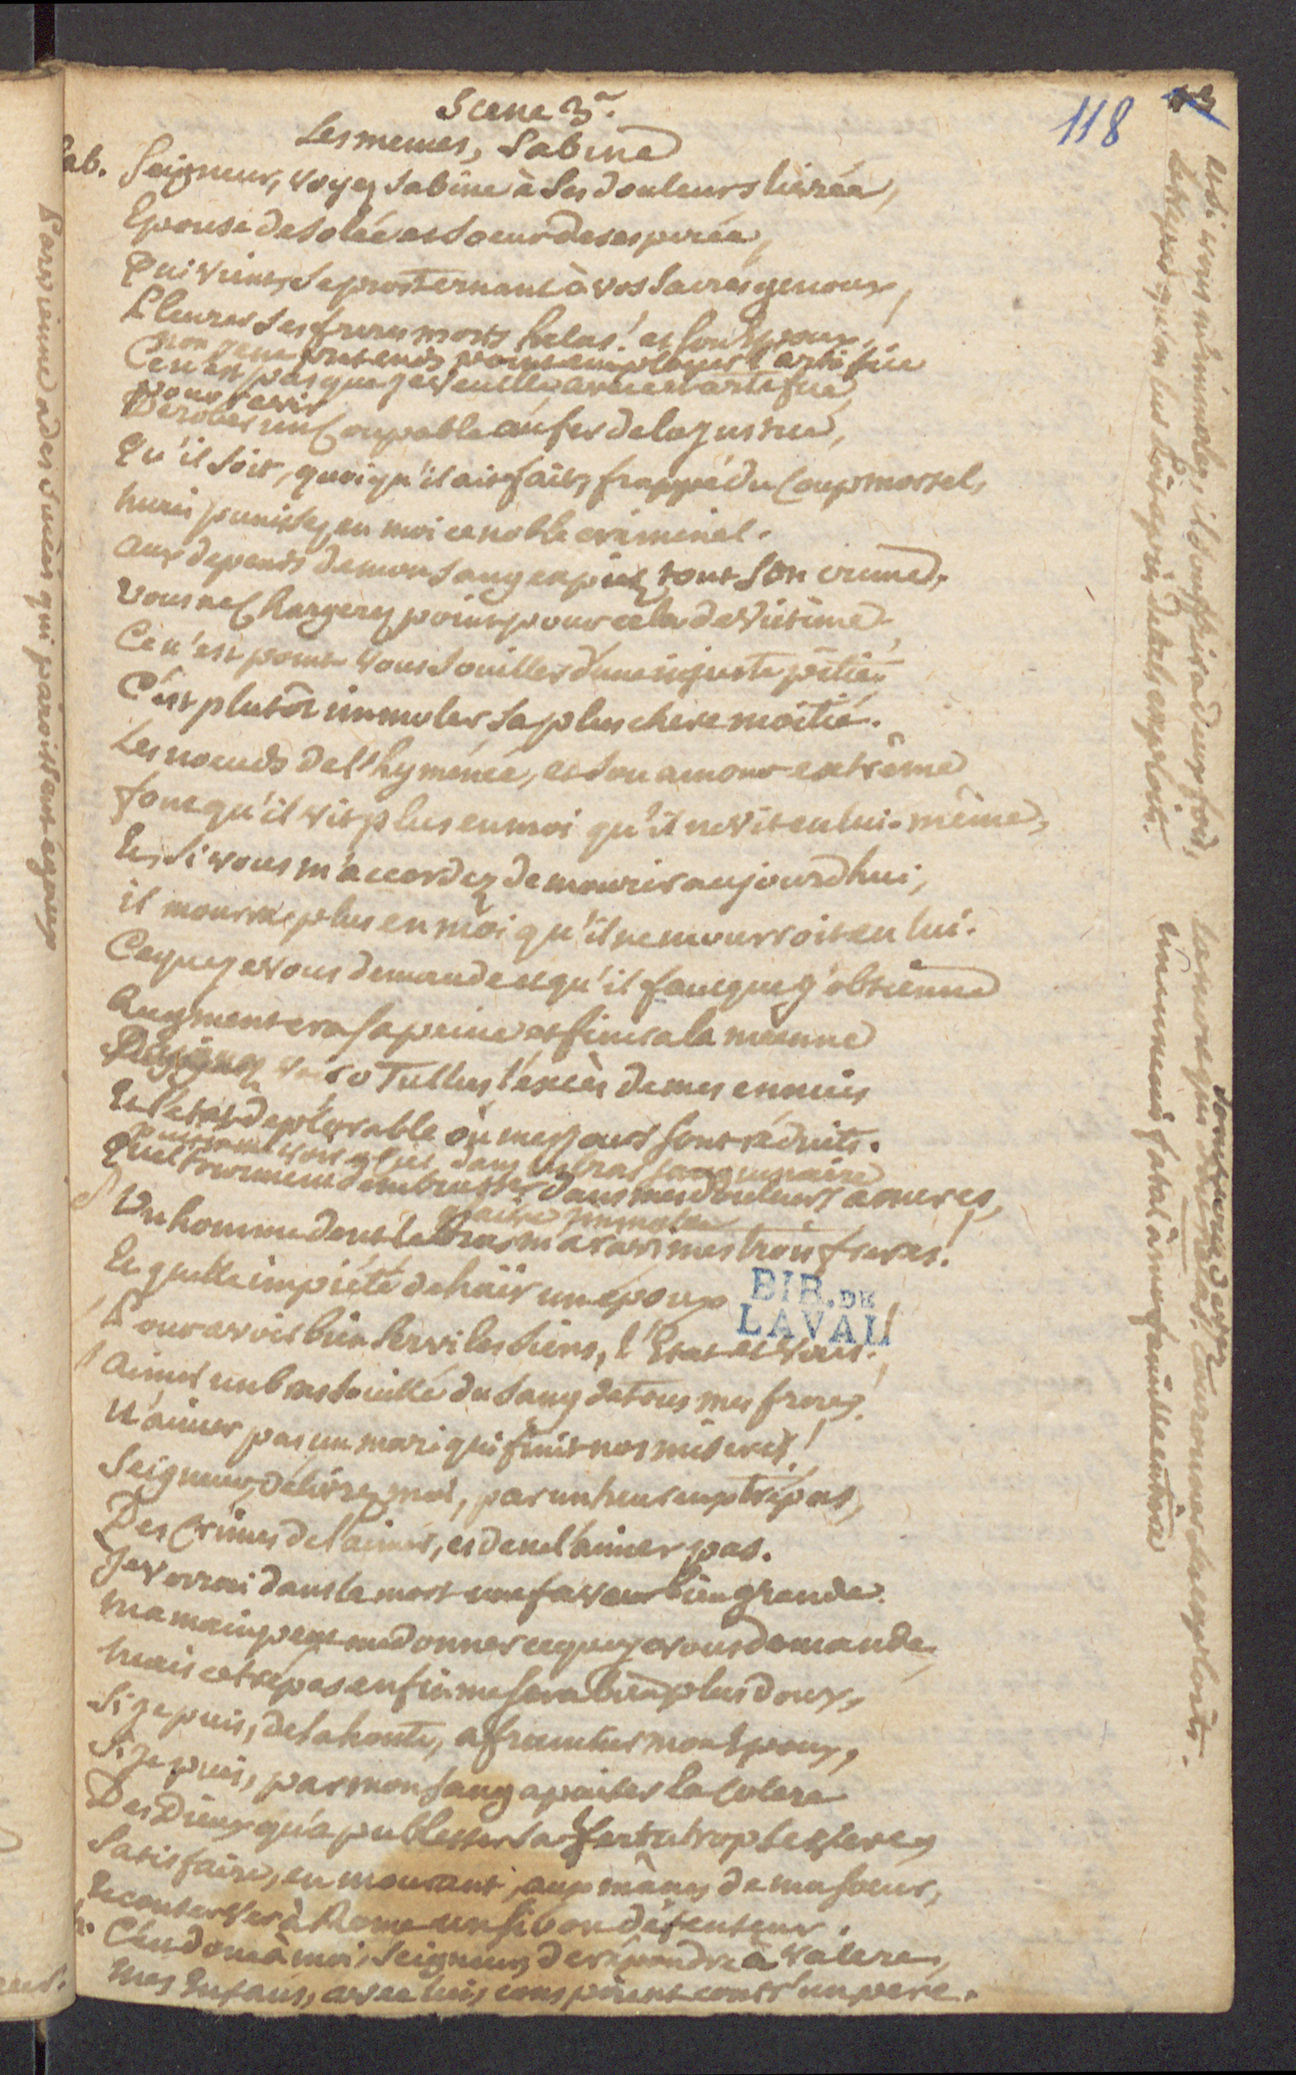 118
Scene 3e.
Les memes, Sabine
Sab. Seigneur, voyez Sabine à ses douleurs livrée,
Epouse desolée et soeur desesperée,
Qui vient, se prosternant à vos sacrés genoux,
Pleurer ses freres morts, helas! et son Epoux.
Non je ne pretends point employer l'artifice
Ce n'est pas que je veuille avec cet artifice
pour ravir
Dérober un Coupable au fer de la justice,
Qu'il soit, quoiqu'il ait fait, frappé du Coup mortel,
Mais punissez en moi ce noble criminel.
aux depends de mon sang expiez tout son crime.
Vous ne Changerez point pour cela de Victime.
Ce n'est point vous souiller d'une injuste pitié.
C'est plutôt immoler sa plus chere moitié.
Les noeuds de l'hyménée, et son amour extrême
font qu'il vit plus en moi qu'il ne vit en lui-même,
Et, si vous m'accordez de mourir aujourdhui,
il mourra plus en moi qu'il ne mourroit en lui.
Ce que je vous demande et qu'il faut que j'obtienne
Augmentera sa peine et finira la mienne
ô Tullus, l'excès de mes ennuis
Et l'etat deplorable où mes jours sont réduits.
dans un bras sanguinaire
Quel tourment d'embrasser dans mes douleurs ameres,
immoler
Un homme dont le bras m'a ravi mes trois freres!
Et quelle impiété de haïr un époux
BIB. DE
LAVAL
Pour avoir bien servi les siens, l'Etat et Vous!
Aimer un bras souillé du sang de tous mes freres!
N'aimer pas un mari qui finit nos miseres!
Seigneur, délivrez moi, par un heureux trépas,
Des crimes de l'aimer, et de ne l'aimer pas.
Je verrai dans la mort une faveur bien grande.
Ma main peut me donner ce que je vous demande,
Mais ce trepas enfin me sera bien plus doux,
Si je puis, de la honte, affranchir mon Epoux,
Si je puis, par mon sang apaiser la Colere
Des Dieux qu'a pu blesser sa vertu trop severe,
Satisfaire, en mourant, aux mânes de ma soeur,
Et conserver à Rome un si bon défenseur.
h. C'est donc à moi, Seigneur, de répondre à Valere,
Mes Enfans, avec lui, conspirent contr'un pere.
et si vous m'immolez, il souffrira deux fois,
une ennemi fatal à ma famille entière
Parvienne à des succès qui paroissent égaux